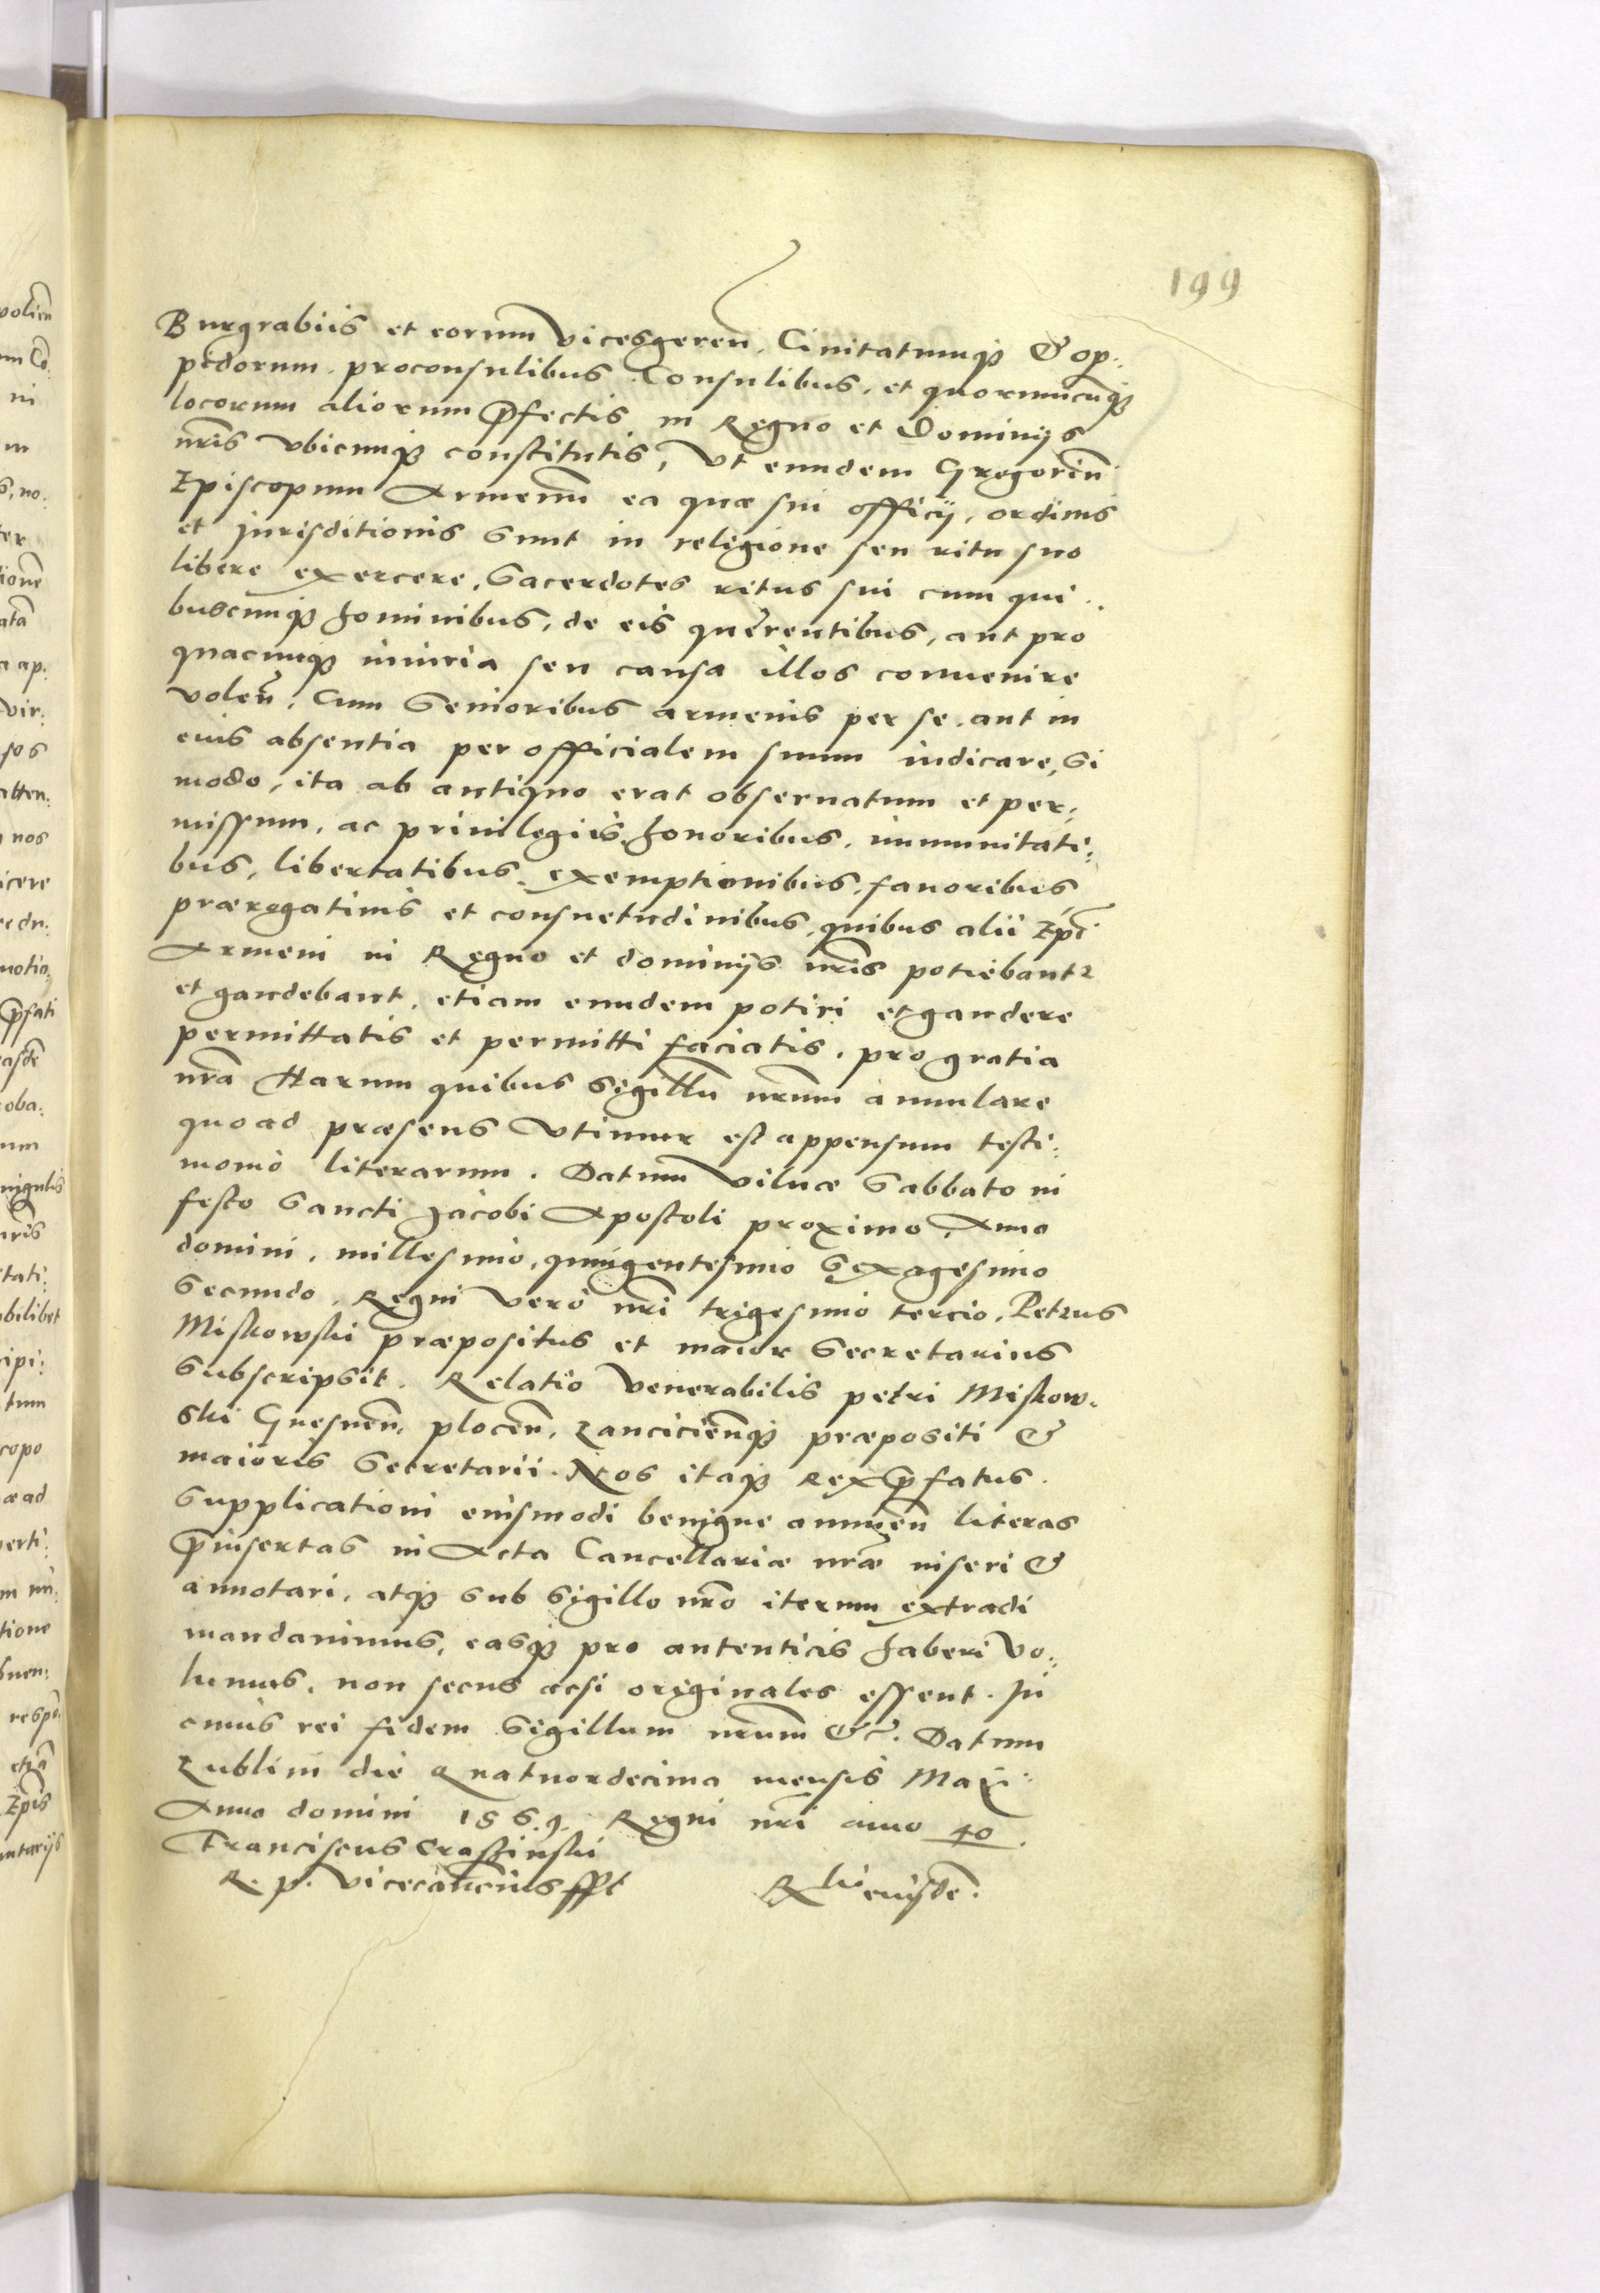 199
Burgrabiis et eorum vicesgeren̄. Civitatumq₃ & op:
pidorum. proconsulibus. Consulibus. et quorumcunq₃
locorum aliorum p̄fectis in Regno et Dominijs
nr̄is vbicunq₃ constitutis, Vt eundem Gregorium
Episcopum Armenū ea quæ sui officij, ordinis
et Jurisditionis sunt in religione seu ritu suo
libere exercere, Sacerdotes ritus sui cum qui:
buscunq₃ hominibus, de eis querentibus, aut pro
quacunq₃ iniuria seu causa illos conuenire
volen̄, Cum Senioribus armenis per se. aut in
eius absentia per officialem suum iudicare, Si
modo, ita ab antiquo erat obseruatum et per:
missum, ac priuilegiis, honoribus, immunitati:
bus, libertatibus. exemptionibus. fauoribus
prærogatiuis et consuetudinibus quibus alii Ep̄i
Armeni in Regno et dominijs nr̄is potiebantr
et gaudebant. etiam eundem potiri et gaudere
permittatis et permitti faciatis. pro gratia
nr̄a Harum quibus Sigillū nrūm annulare
quo ad præsens vtimur est appensum testi:
monio literarum. Datum Vilnæ Sabbato in
festo Sancti Jacobi Apostoli proximo, Anno
domini. millesimo, quingentesimo Sexagesimo
Secundo. Regni vero nr̄i trigesimo tercio. Petrus
Miskowski præpositus et maior Secretarius
Subscripsit. Relatio Venerabilis petri Miskow.
ski Gnesnen̄. plocen̄. Lanciciēnq₃ præpositi &
maioris Secretarii. Nos itaq₃ Rex p̄fatus.
Supplicationi eiusmodi benigne annuen̄ literas
p̄insertas in Acta Cancellariæ nr̄æ inseri &
annotari, atq₃ sub Sigillo nr̄o iterum extradi
mandauimus, easq₃ pro autenticis haberi vo:
lumus, non secus acsi originales essent. In
cuius rei fidem Sigillum nrūm &c̄. Datum
Lublini die Quatuordecima mensis Maii
Anno domini 1569. Regni nr̄i anno 40.
Franciscus Crassinski
R. p. Vicecan̄cius sspt
Rlō eiusdē.